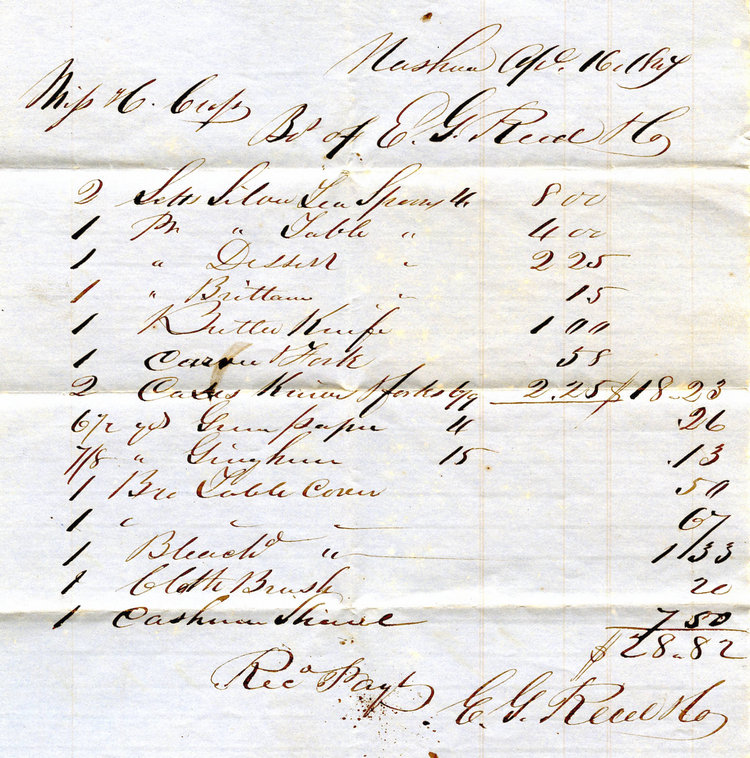 Nashua Apl. 16. 1847
Miss H. Cross
Bot of E. G. Reed & Co
2 Setts Silver Tea Spoons 4. 8 00
1 Pr " Table " 4 00
1 " Dessert " 2 25
1 " Brittan " 15
1 Butter Knife 1 00
1 Carver & Fork 58
2 Cases Knives & forks 6/9 2.25 $18.23
6 1/2 yds Green paper 4 .26
7/8 " Gingham 15 .13
1 Bro Table Cover 50
1 " — — 67
1 Bleachd " 1 33
1 Cloth Brush 20
1 Cashmere Shawl 7 50
$28.82
Recd Payt
E. G. Reed & Co